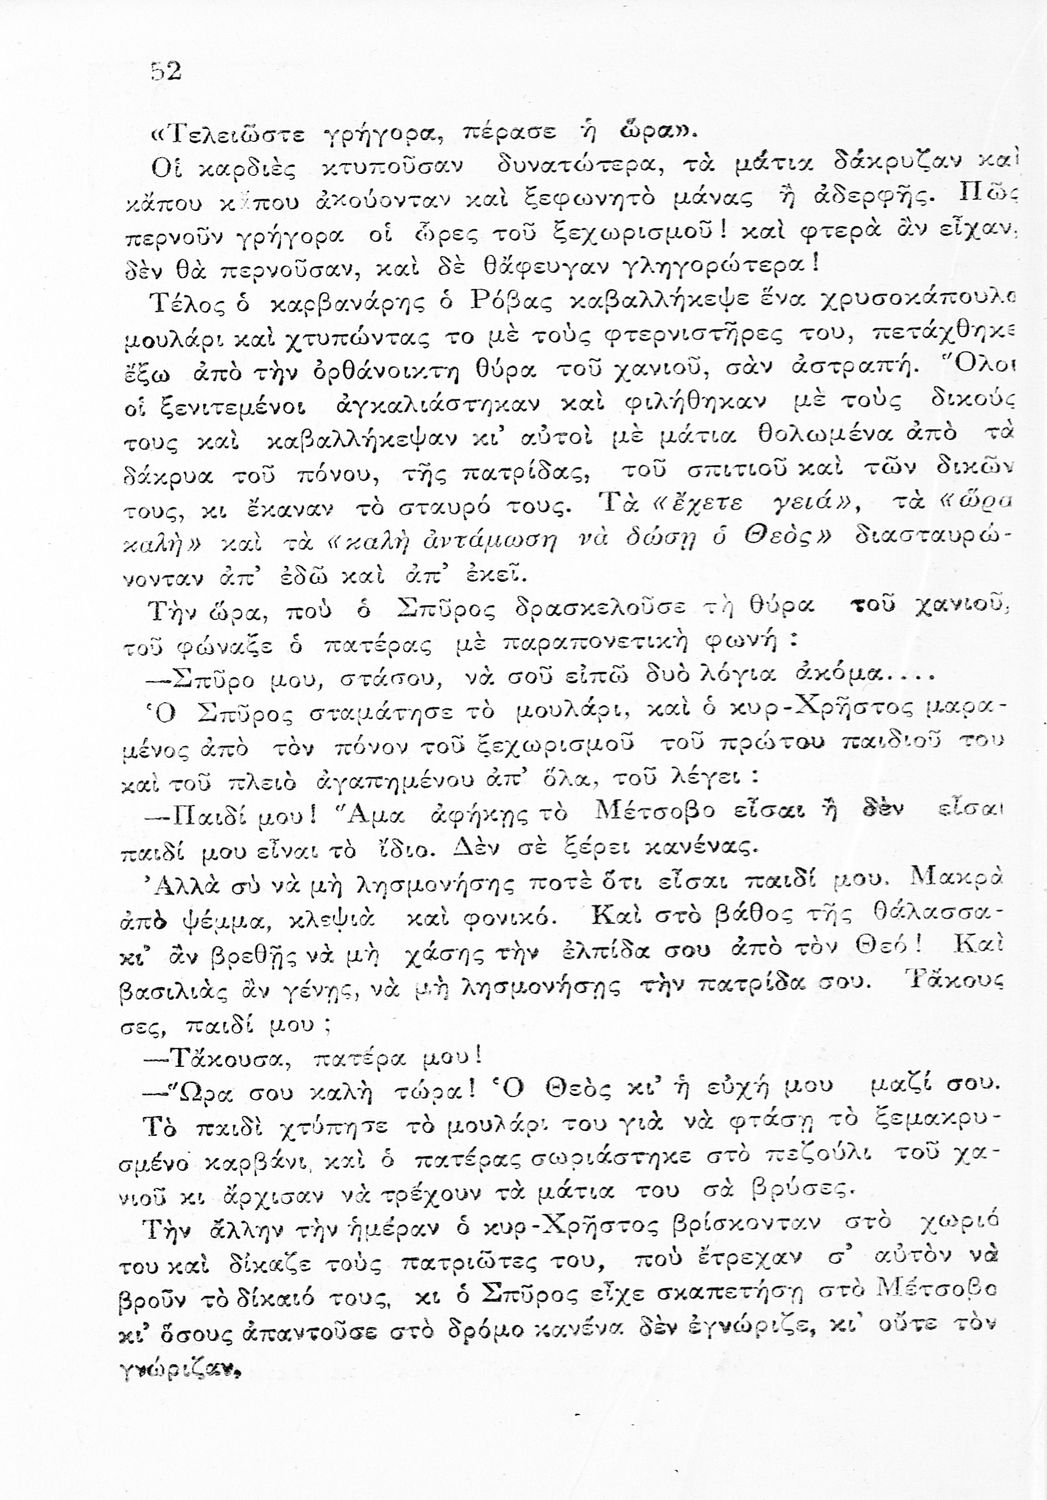 52
«Τελειῶστε γρήγορα, πέρασε ἡ ὥρα».
Οἱ καρδιὲς κτυποῦσαν δυνατώτερα, τὰ μάτια δάκρυζαν καὶ
κἄπου κἄπου ἀκούονταν καὶ ξεφωνητὸ μάνας ἢ ἀδερφῆς. Πῶς
περνοῦν γρήγορα οἱ ὧρες τοῦ ξεχωρισμοῦ! καὶ φτερὰ ἂν εἶχαν,
δὲν θὰ περνοῦσαν, καὶ δὲ θἄφευγαν γληγορώτερα!
Τέλος ὁ καρβανάρης ὁ Ρόβας καβαλλήκεψε ἕνα χρυσοκάπουλο
μουλάρι καὶ χτυπώντας το μὲ τοὺς φτερνιστῆρες του, πετάχθηκε
ἔξω ἀπὸ τὴν ὀρθάνοικτη θύρα τοῦ χανιοῦ, σὰν ἀστραπή. Ὅλοι
οἱ ξενιτεμένοι ἀγκαλιάστηκαν καὶ φιλήθηκαν μὲ τοὺς δικούς
τους καὶ καβαλλήκεψαν κι' αὐτοὶ μὲ μάτια θολωμένα ἀπὸ τὰ
δάκρυα τοῦ πόνου, τῆς πατρίδας, τοῦ σπιτιοῦ καὶ τῶν δικῶν
τους, κι ἔκαναν τὸ σταυρό τους. Τὰ «ἔχετε γειά», τὰ «ὥρα
καλὴ» καὶ τὰ «καλὴ ἀντάμωση νὰ δώσῃ ὁ Θεὸς» διασταυρώ-
νονταν ἀπ' ἐδῶ καὶ ἀπ' ἐκεῖ.
Τὴν ὥρα, ποὺ ὁ Σπῦρος δρασκελοῦσε τὴ θύρα τοῦ χανιοῦ,
τοῦ φώναξε ὁ πατέρας μὲ παραπονετικὴ φωνή :
—Σπῦρο μου, στάσου, νὰ σοῦ εἰπῶ δυὸ λόγια ἀκόμα....
Ὁ Σπῦρος σταμάτησε τὸ μουλάρι, καὶ ὁ κυρ-Χρῆστος μαρα-
μένος ἀπὸ τὸν πόνον τοῦ ξεχωρισμοῦ τοῦ πρώτου παιδιοῦ του
καὶ τοῦ πλειὸ ἀγαπημένου ἀπ' ὅλα, τοῦ λέγει :
—Παιδί μου! Ἅμα ἀφήκῃς τὸ Μέτσοβο εἶσαι ἢ δὲν εἶσαι
παιδί μου εἶναι τὸ ἴδιο. Δὲν σὲ ξέρει κανένας.
Ἀλλὰ σὺ νὰ μὴ λησμονήσης ποτὲ ὅτι εἶσαι παιδί μου. Μακρὰ
ἀπὸ ψέμμα, κλεψιὰ καὶ φονικό. Καὶ στὸ βάθος τῆς θάλασσα-
κι' ἂν βρεθῇς νὰ μὴ χάσης τὴν ἐλπίδα σου ἀπὸ τὸν Θεό! Καὶ
βασιλιὰς ἂν γένῃς, νὰ μὴ λησμονήσῃς τὴν πατρίδα σου. Τἄκους
σες, παιδί μου ;
—Τἄκουσα, πατέρα μου!
—Ὥρα σου καλὴ τώρα! Ὁ Θεὸς κι' ἡ εὐχή μου μαζί σου.
Τὸ παιδὶ χτύπησε τὸ μουλάρι του γιὰ νὰ φτάσῃ τὸ ξεμακρυ-
σμένο καρβάνι, καὶ ὁ πατέρας σωριάστηκε στὸ πεζούλι τοῦ χα-
νιοῦ κι ἄρχισαν νὰ τρέχουν τὰ μάτια του σὰ βρύσες.
Τὴν ἄλλην τὴν ἡμέραν ὁ κυρ-Χρῆστος βρίσκονταν στὸ χωριό
του καὶ δίκαζε τοὺς πατριῶτες του, ποὺ ἔτρεχαν σ' αὐτὸν νὰ
βροῦν τὸ δίκαιό τους, κι ὁ Σπῦρος εἶχε σκαπετήσῃ στὸ Μέτσοβο
κι' ὅσους ἀπαντοῦσε στὸ δρόμο κανένα δὲν ἐγνώριζε, κι' οὔτε τὸν
γνώριζαν,